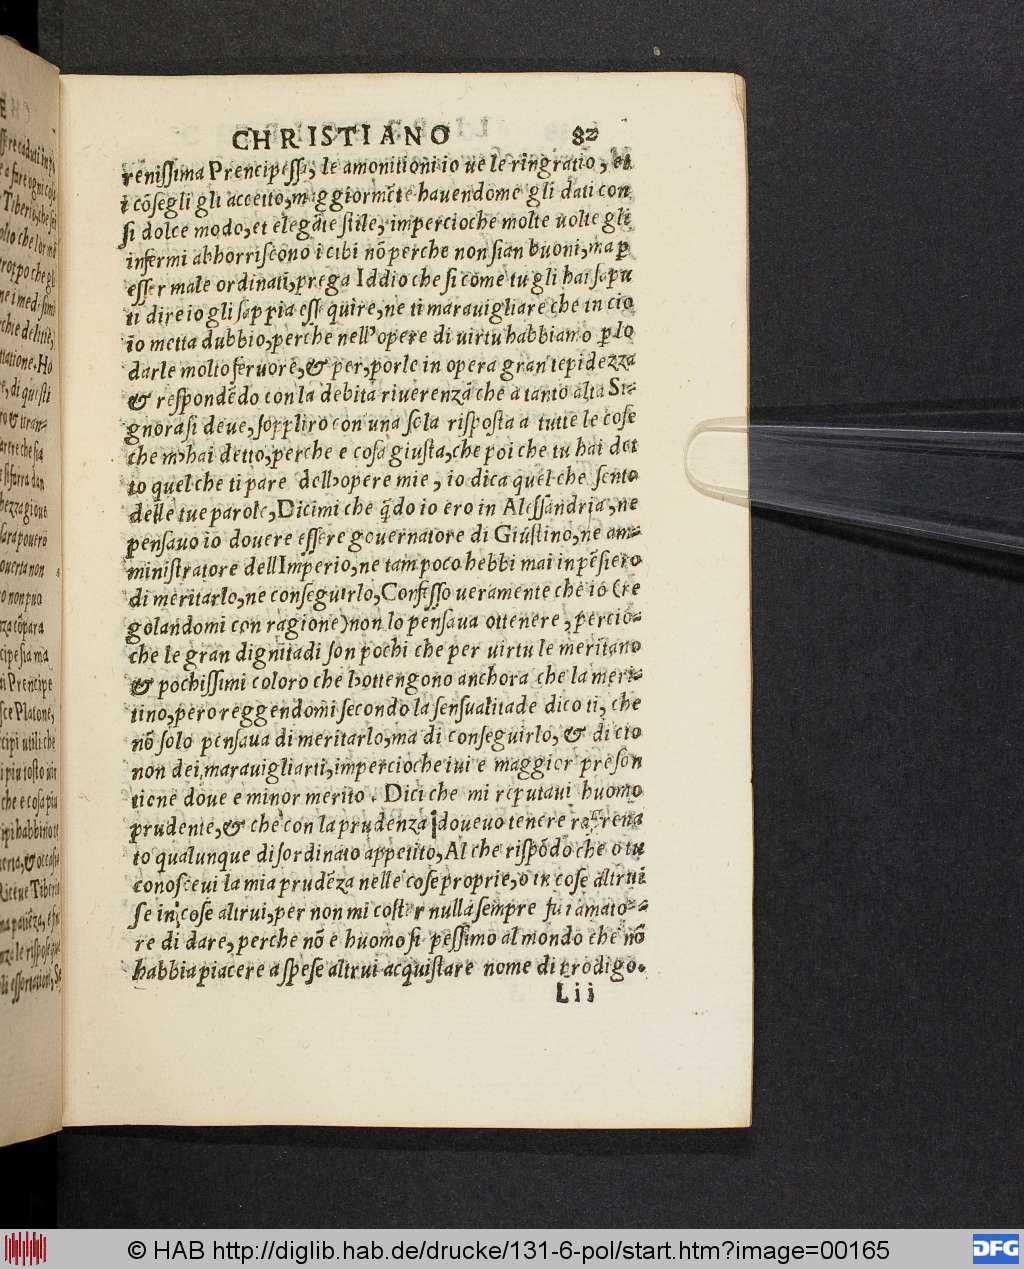 CHRISTIANO 82
renissima Prencipessa, le amonitioni io ve le ringratio, et
i cõsegli gli accetto, maggiormẽte havendome gli dati con
si dolce modo, et elegãte stile, impercioche molte uolte gli
infermi abhorriscono i cibi nõ perche non sian buoni, ma ꝑ
esser male ordinati, prega Iddio che si come tu gli hai sapu
ti dire io gli sappia essequire, ne ti marauigliare che in cio
io metta dubbio, perche nell'opere di uirtu habbiamo ꝑ lo
darle molto feruore, & per, porle in opera gran tepidezza
& respondẽdo con la debita riuerenza che a tanto alta Si-
gnora si deue, sopplirò con una sola risposta a tutte le cose
che m'hai detto, perche e cosa giusta, che poi che tu hai det
to quel che ti pare dell'opere mie, io dica quel che sento
delle tue parole, Dicimi che q̃do io ero in Alessandria, ne
pensavo io douere essere gouernatore di Giustino, ne am-
ministratore dell Imperio, ne tam poco hebbi mai in pẽsiero
di meritarlo, ne conseguirlo, Confesso ueramente che io (re
golandomi con ragione) non lo pensaua ottenere, percio-
che le gran dignitadi son pochi che per uirtu le meritano
& pochissimi coloro che l'ottengono anchora che la meri-
tino, pero reggendomi secondo la sensualitade dico ti, che
nõ solo pensaua di meritarlo, ma di conseguirlo, & di cio
non dei, marauigliarti, impercioche iui e maggior preson
tione doue e minor merito. Dici che mi reputaui huomo
prudente, & che con la prudenza doueuo tenere raffrena
to qualunque disordinato appetito, Al che rispõdo che o tu
conosceui la mia prudẽza nelle cose proprie, o in cose altrui
se in cose altrui, per non mi costar nulla sempre fui amato-
re di dare, perche nõ e huomo si pessimo al mondo che nõ
habbia piacere a spese altrui acquistare nome di prodigo.
L ii
© HAB http://diglib.hab.de/drucke/131-6-pol/start.htm?image=00165
DFG